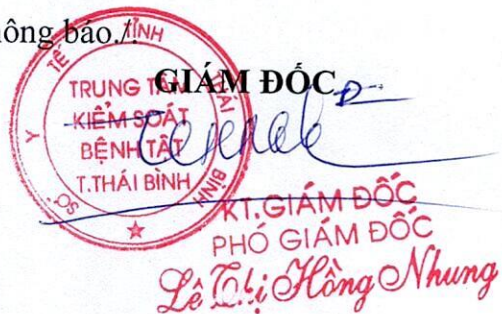 hông báo./.
GIÁM ĐỐC
SỞ Y TẾ TỈNH THÁI BÌNH
TRUNG TÂM
KIỂM SOÁT
BỆNH TẬT
T.THÁI BÌNH
KT.GIÁM ĐỐC
PHÓ GIÁM ĐỐC
Lê Thị Hồng Nhung